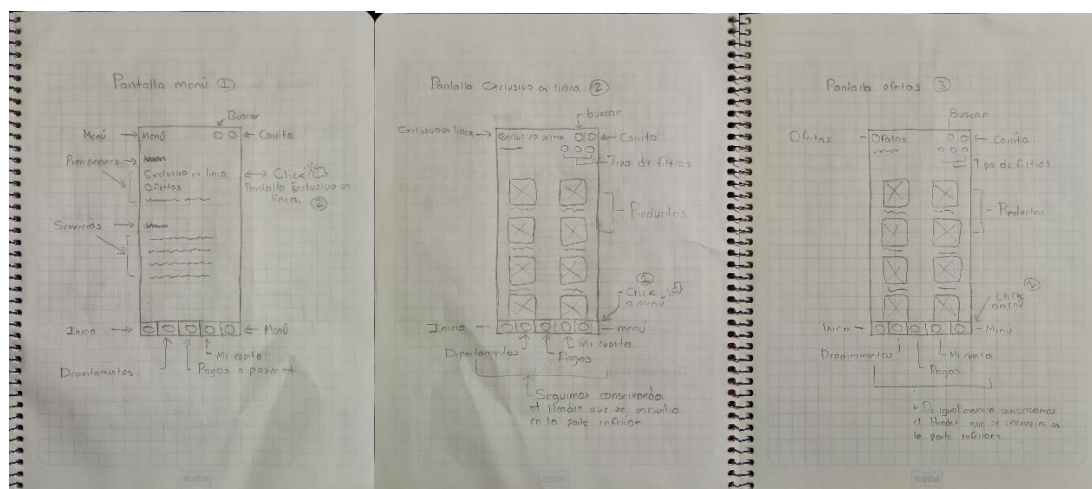 Pantalla menú ①
Buscar
Menú
Menú
Carrito
Promociones
Exclusivo en linea
Ofertas
Click
Pantalla Exclusivo en
linea ②
Servicios
Inicio
Menú
Mi cuenta
Departamentos
Pagos o payment
Scribe
Pantalla Exclusivo en linea ②
buscar
Exclusivo en linea
Exclusivo en linea
Carrito
Tipo de filtros
Productos
Click
a menú
Inicio
menú
Mi cuenta
Departamentos
Pagos
Seguimos conservando
el Header que se encuentra
en la parte inferior
Scribe
Pantalla ofertas ③
Buscar
Ofertas
Ofertas
Carrito
Tipo de filtros
Productos
Click
a menú
Inicio
Menú
Departamentos
Mi cuenta
Pagos
De igual manera conservamos
el Header que se encuentra en
la parte inferior
Scribe